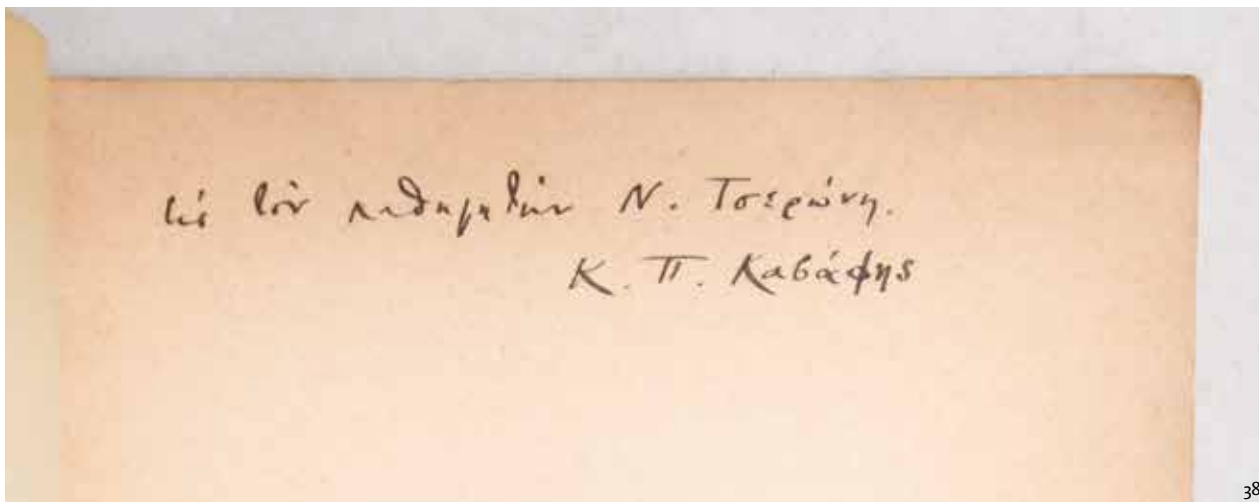 εἰς τὸν καθηγητὴν Ν. Τσερώνη.
Κ. Π. Καβάφης
38